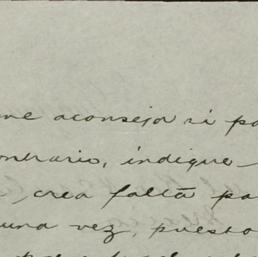 me aconseja si pa
ontrario, indique-
, crea falta pa
una vez, puesto